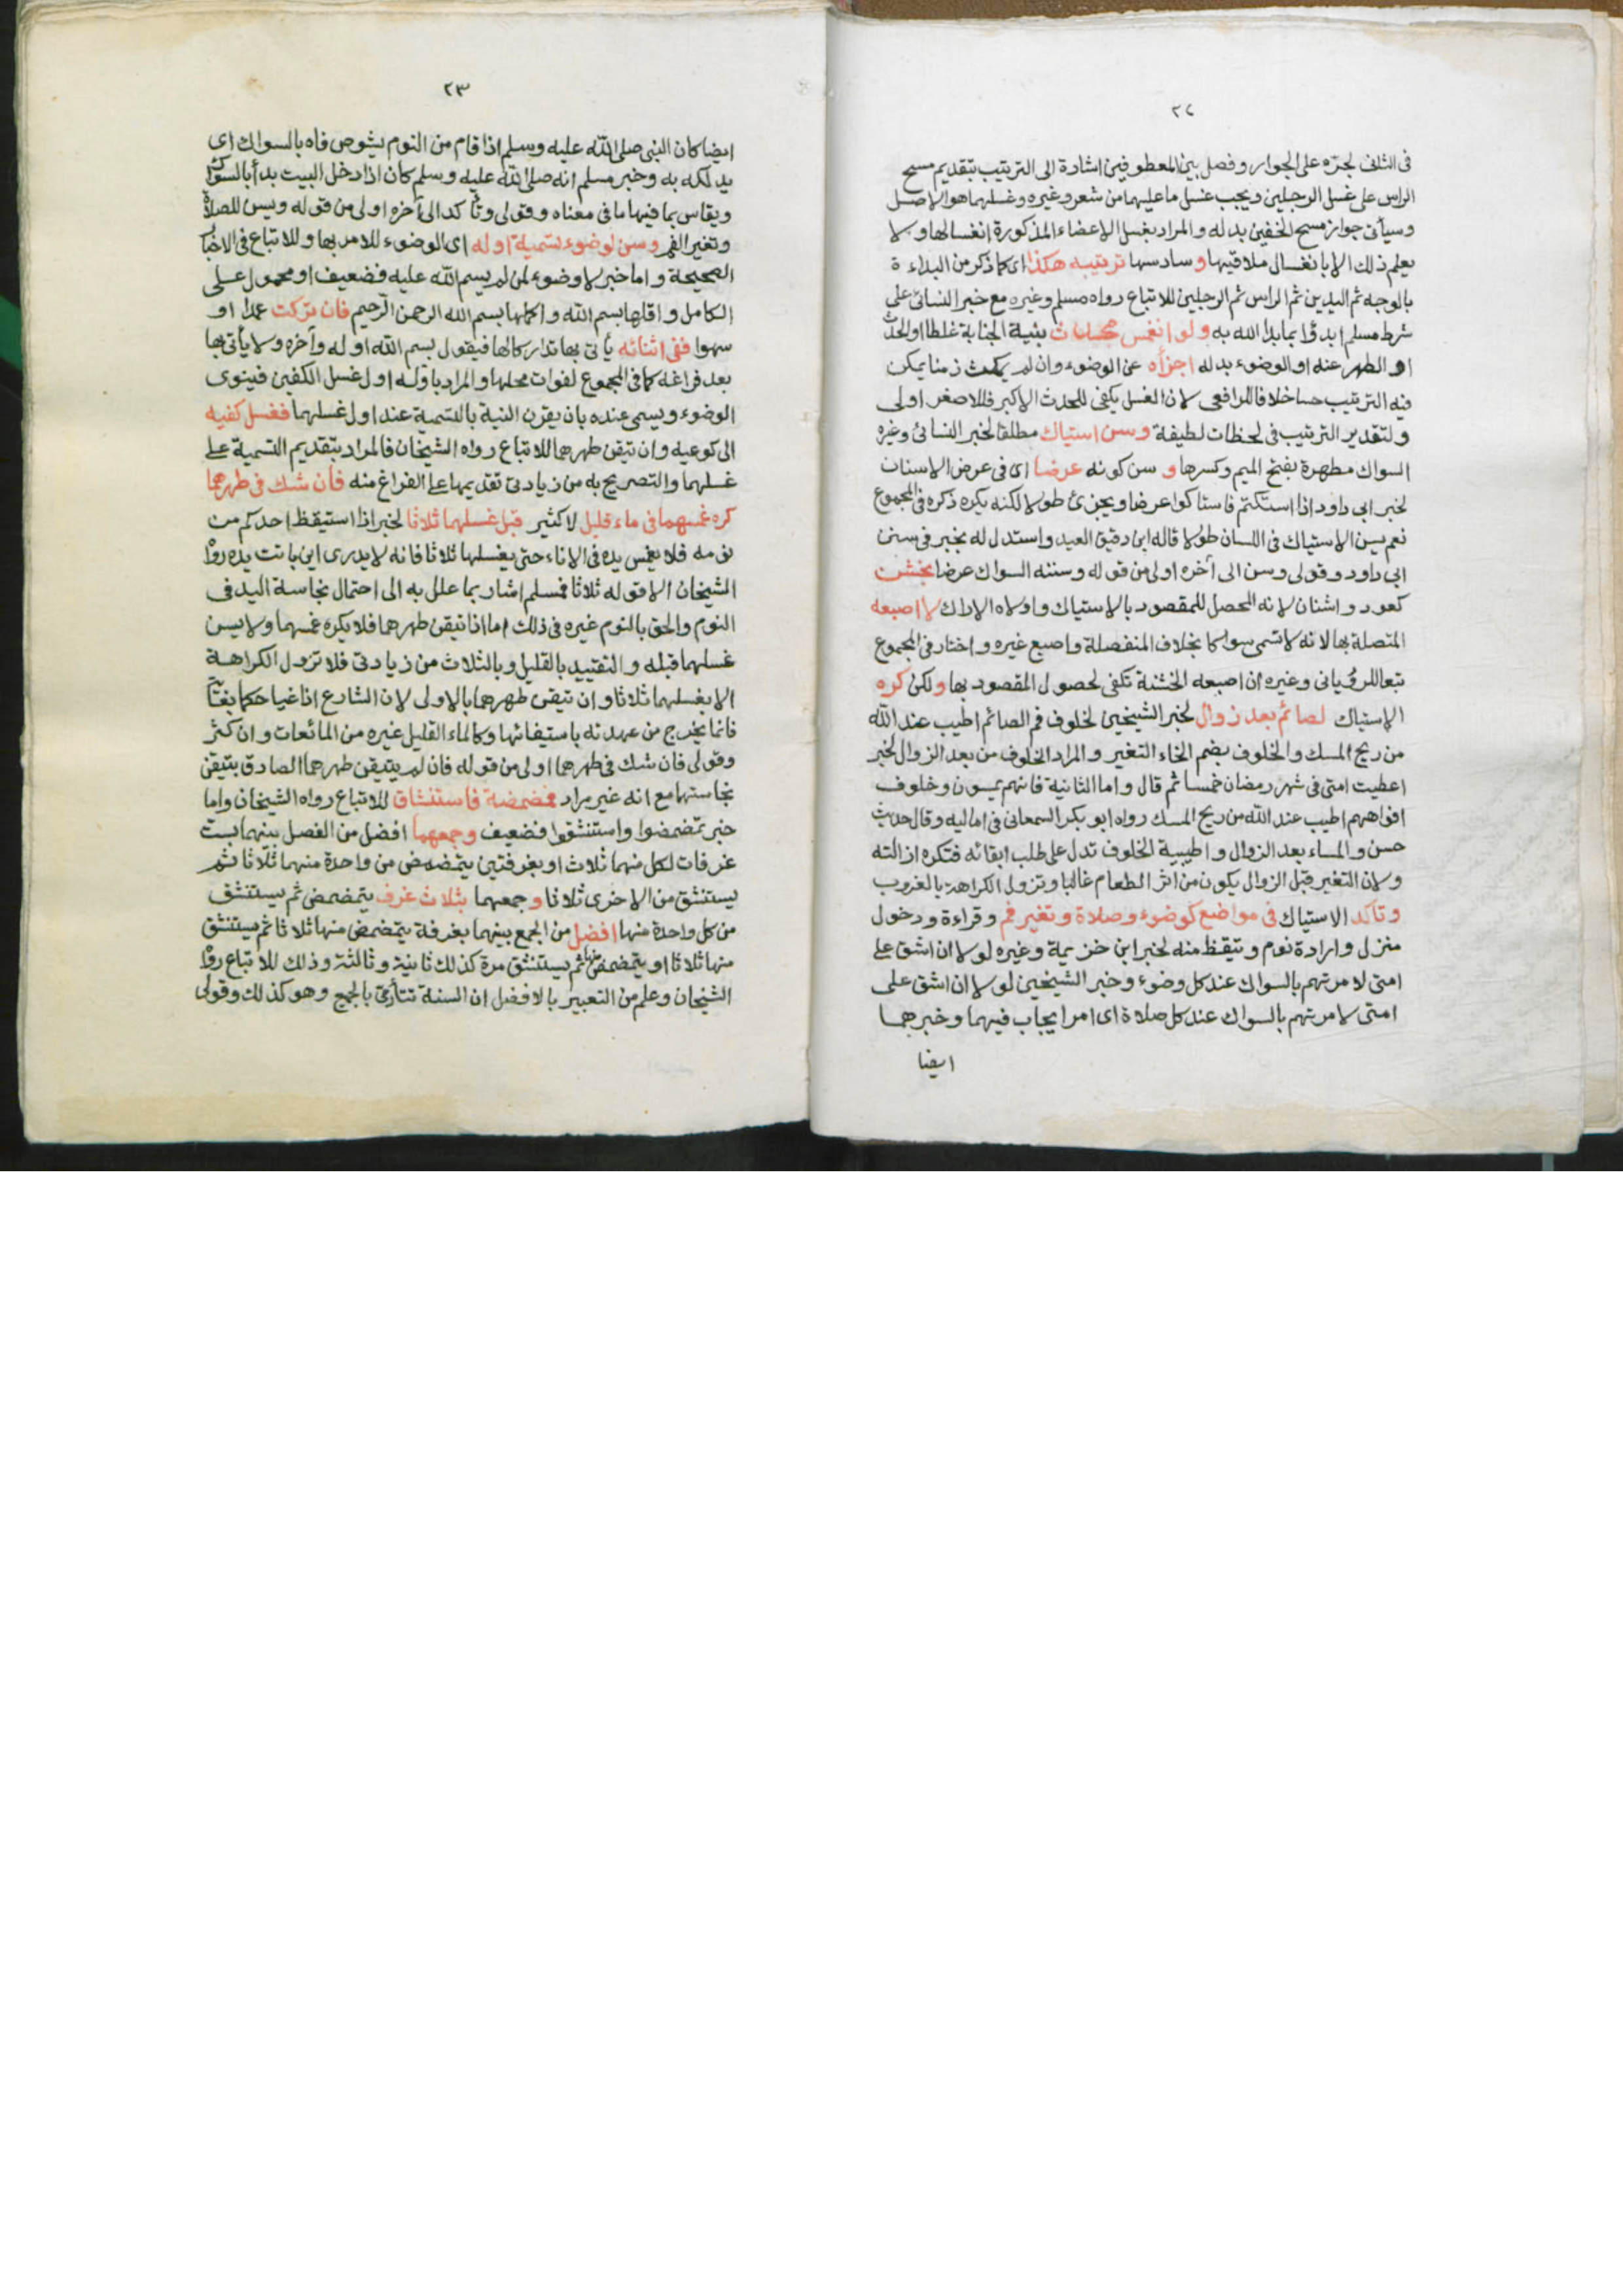 ٢٢
في الثاني لجره على الجوار وفصل بين المعطوفين اشارة الى الترتيب بتقديم مسح
الراس على غسل الرجلين ويجب غسل ما عليهما من شعر وغيره وغسلهما هو الاصل
وسيأتي جواز مسح الخفين بدله والمراد بغسل الاعضاء المذكورة انغسالها ولا
يعلم ذلك الا بانغسال ملاقيها وسادسها ترتيبه هكذا اى كما ذكر من البداءة
بالوجه ثم اليدين ثم الراس ثم الرجلين للاتباع رواه مسلم وغيره مع خبر النسائى على
شرط مسلم ابدؤا بما بدا الله به ولو انغمس محدث بنية الجنابة غلطا او الحدث
او الطهر عنه او الوضوء بدله اجزأه عن الوضوء وان لم يمكث زمنا يمكن
فيه الترتيب حسا خلافا للرافعى لان الغسل يكفى للحدث الاكبر فللاصغر اولى
ولتقدير الترتيب فى لحظات لطيفة وسن استياك مطلقا لخبر النسائى وغيره
السواك مطهرة بفتح الميم وكسرها و سن كونه عرضا اى فى عرض الاسنان
لخبر ابى داود اذا استكتم فاستاكوا عرضا ويجزئ طولا لكنه يكره ذكره فى المجموع
نعم يسن الاستياك فى اللسان طولا قاله ابن دقيق العيد واستدل له بخبر فى سنن
ابى داود وقولى وسن الى آخره اولى من قوله وسننه السواك عرضا بخشن
كعود واشنان لانه المحصل للمقصود بالاستياك واولاه الاراك لا اصبعه
المتصلة بها لانه لا تسمى سواكا بخلاف المنفصلة واصبع غيره واختار فى المجموع
تبعا للرويانى وغيره ان اصبعه الخشنة تكفى لحصول المقصود بها ولكن كره
الاستياك لصائم بعد زوال لخبر الشيخين لخلوف فم الصائم اطيب عند الله
من ريح المسك والخلوف بضم الخاء التغير والمراد الخلوف من بعد الزوال لخبر
اعطيت امتى فى شهر رمضان خمسا ثم قال واما الثانية فانهم يمسون وخلوف
افواههم اطيب عند الله من ريح المسك رواه ابو بكر السمعانى فى اماليه وقال حديث
حسن والمساء بعد الزوال واطيبية الخلوف تدل على طلب ابقائه فتكره ازالته
ولان التغير قبل الزوال يكون من اثر الطعام غالبا وتزول الكراهة بالغروب
وتاكد الاستياك فى مواضع كوضوء وصلاة وتغير فم وقراءة ودخول
منزل وارادة نوم وتيقظ منه لخبر ابن خزيمة وغيره لولا ان اشق على
امتى لامرتهم بالسواك عند كل وضوء وخبر الشيخين لولا ان اشق على
امتى لامرتهم بالسواك عند كل صلاة اى امر ايجاب فيهما وخبرهما
ايضا
٢٣
ايضا كان النبى صلى الله عليه وسلم اذا قام من النوم يشوص فاه بالسواك اى
يدلكه به وخبر مسلم انه صلى الله عليه وسلم كان اذا دخل البيت بدأ بالسواك
ويقاس بما فيها ما فى معناه وقولى وتأكد الى آخره اولى من قوله ويسن للصلاة
وتغير الفم وسن لوضوء تسمية اوله اى الوضوء للامر بها وللاتباع فى الاخبار
الصحيحة واما خبر لا وضوء لمن لم يسم الله عليه فضعيف او محمول على
الكامل واقلها بسم الله واكملها بسم الله الرحمن الرحيم فان تركت عمدا او
سهوا ففى اثنائه يأتى بها تداركا لها فيقول بسم الله اوله وآخره ولا يأتى بها
بعد فراغه كما فى المجموع لفوات محلها والمراد باوله اول غسل الكفين فينوى
الوضوء ويسمى عنده بان يقرن النية بالتسمية عند اول غسلهما فغسل كفيه
الى كوعيه وان تيقن طهرهما للاتباع رواه الشيخان فالمراد بتقديم التسمية على
غسلهما والتصريح به من زيادتى تقديمها على الفراغ منه فان شك فى طهرهما
كره غمسهما فى ماء قليل لا كثير قبل غسلهما ثلاثا لخبر اذا استيقظ احدكم من
نومه فلا يغمس يده فى الاناء حتى يغسلها ثلاثا فانه لا يدرى اين باتت يده رواه
الشيخان الا قوله ثلاثا فمسلم اشار بما علل به الى احتمال نجاسة اليد فى
النوم والحق بالنوم غيره فى ذلك اما اذا تيقن طهرهما فلا يكره غمسهما ولا يسن
غسلهما قبله والتقييد بالقليل وبالثلاث من زيادتى فلا تزول الكراهة
الا بغسلهما ثلاثا وان تيقن طهرهما بالاولى لان الشارع اذا غيا حكما بغاية
فانما يخرج من عهدته باستيفائها وكالماء القليل غيره من المائعات وان كثر
وقولى فان شك فى طهرهما اولى من قوله فان لم يتيقن طهرهما الصادق بتيقن
نجاستهما مع انه غير مراد فمضمضة فاستنشاق للاتباع رواه الشيخان واما
خبر تمضمضوا واستنشقوا فضعيف وجمعهما افضل من الفصل بينهما بست
غرفات لكل منهما ثلاث او بغرفتين يتمضمض من واحدة منهما ثلاثا ثم
يستنشق من الاخرى ثلاثا وجمعهما بثلاث غرف يتمضمض ثم يستنشق
من كل واحدة منها افضل من الجمع بينهما بغرفة يتمضمض منها ثلاثا ثم يستنشق
منها ثلاثا او يتمضمض منها ثم يستنشق مرة كذلك ثانية وثالثة وذلك للاتباع رواه
الشيخان وعلم من التعبير بالافضل ان السنة تتأدى بالجمع وهو كذلك وقولى